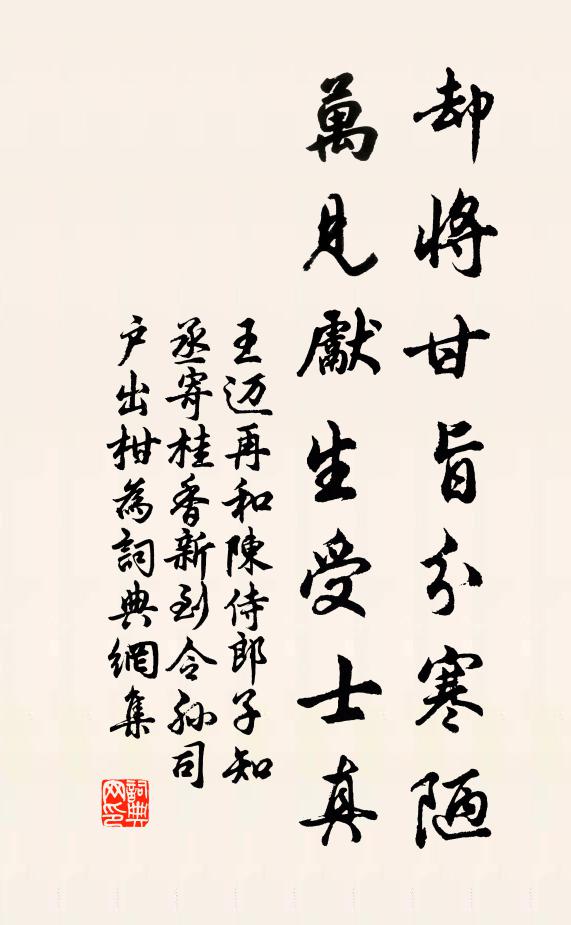 却將甘旨分寒陋
萬見獻生受士真
王迈再和陳侍郎子知
丞寄桂香新到令孙司
户出柑為詞典網集
詞典网印